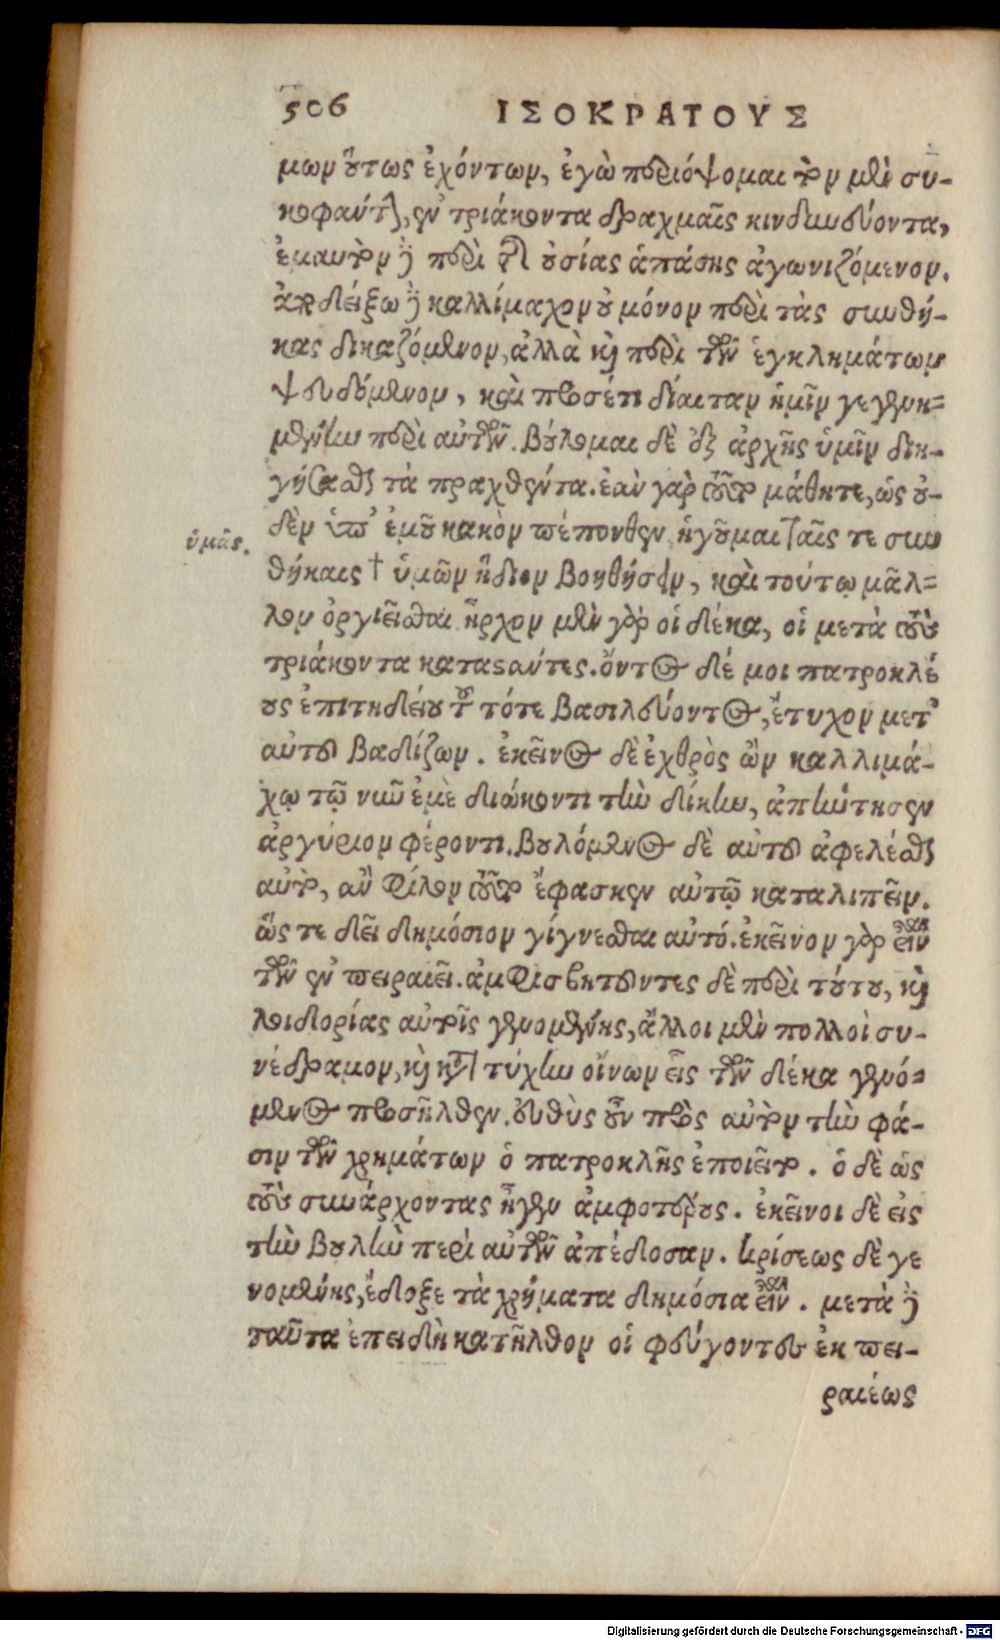 506 ΙΣΟΚΡΑΤΟΥΣ
μων οὕτως ἐχόντων, ἐγὼ περιόψομαι τὸν μὲν συ-
κοφάντην, ἐν τριάκοντα δραχμαῖς κινδυνεύοντα,
ἐμαυτὸν δὲ περὶ τῆς οὐσίας ἁπάσης ἀγωνιζόμενον.
ἀποδείξω δὲ καλλίμαχον οὐ μόνον περὶ τὰς συνθή-
κας δικαζόμενον, ἀλλὰ καὶ περὶ τῶν ἐγκλημάτων
ψευδόμενον, καὶ προσέτι δίαιταν ἡμῖν γεγενη-
μένην περὶ αὐτῶν. βούλομαι δὲ ἐξ ἀρχῆς ὑμῖν διη-
γήσασθαι τὰ πραχθέντα. ἐὰν γὰρ τοῦτο μάθητε, ὡς οὐ-
δὲν ὑπ' ἐμοῦ κακὸν πέπονθεν, ἡγοῦμαι ταῖς τε συν
ὑμᾶς.
θήκαις † ὑμῶν ἥδιον βοηθήσειν, καὶ τούτῳ μᾶλ-
λον ὀργιεῖσθαι. ἦρχον μὲν γὰρ οἱ δέκα, οἱ μετὰ τοὺς
τριάκοντα καταστάντες. ὄντος δέ μοι πατροκλέ
ους ἐπιτηδείου τοῦ τότε βασιλεύοντος, ἔτυχον μετ'
αὐτοῦ βαδίζων. ἐκεῖνος δὲ ἐχθρὸς ὢν καλλιμά-
χῳ τῷ νῦν ἐμὲ διώκοντι τὴν δίκην, ἀπήντησεν
ἀργύριον φέροντι. βουλόμενος δὲ αὐτοῦ ἀφελέσθαι
αὐτό, ἂν φίλον τοῦτο ἔφασκεν αὐτῷ καταλιπεῖν.
ὥς τε δεῖ δημόσιον γίγνεσθαι αὐτό. ἐκεῖνον γὰρ εἶναι
τῶν ἐν πειραιεῖ. ἀμφισβητοῦντες δὲ περὶ τούτου, καὶ
λοιδορίας αὐτοῖς γενομένης, ἄλλοι μὲν πολλοὶ συ-
νέδραμον, καὶ κατὰ τύχην οἴνων εἷς τῶν δέκα γενό-
μενος προσῆλθεν. εὐθὺς οὖν πρὸς αὐτὸν τὴν φά-
σιν τῶν χρημάτων ὁ πατροκλῆς ἐποιεῖτο. ὁ δὲ ὡς
τοὺς συνάρχοντας ἦγεν ἀμφοτέρους. ἐκεῖνοι δὲ εἰς
τὴν βουλὴν περὶ αὐτῶν ἀπέδοσαν. κρίσεως δὲ γε
νομένης, ἔδοξε τὰ χρήματα δημόσια εἶναι. μετὰ δὲ
ταῦτα ἐπειδὴ κατῆλθον οἱ φεύγοντες ἐκ πει-
ραιέως
Digitalisierung gefördert durch die Deutsche Forschungsgemeinschaft - DFG